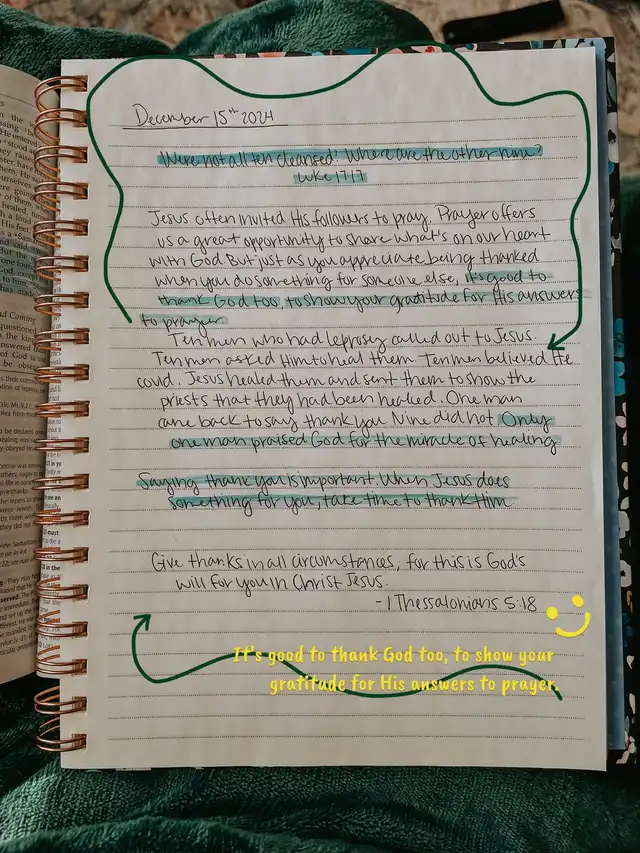 December 15th 2024
"Were not all ten cleansed? Where are the other nine?
Luke 17:17
Jesus often invited His followers to pray. Prayer offers
us a great opportunity to share what's on our heart
with God. But just as you appreciate being thanked
when you do something for someone else, it's good to
thank God too, to show your gratitude for His answers
to prayer.
Ten men who had leprosy called out to Jesus.
Ten men asked Him to heal them. Ten men believed He
could. Jesus healed them and sent them to show the
priests that they had been healed. One man
came back to say thank you. Nine did not. Only
one man praised God for the miracle of healing
Saying thank you is important. When Jesus does
something for you, take time to thank Him.
Give thanks in all circumstances, for this is God's
will for you in Christ Jesus.
- 1 Thessalonians 5:18
It's good to thank God too, to show your
gratitude for His answers to prayer.